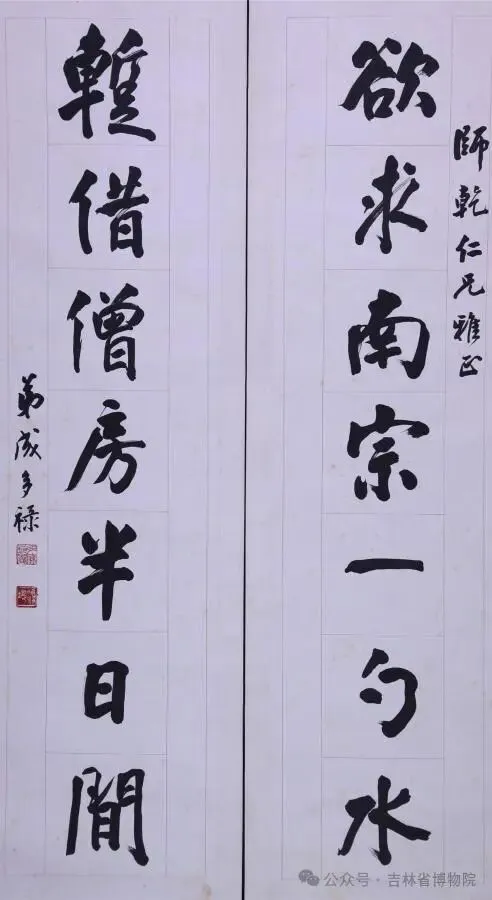 師乾仁兄雅正
欲求南宗一勺水
蹔借僧房半日閒
弟成多祿
公众号·吉林省博物院